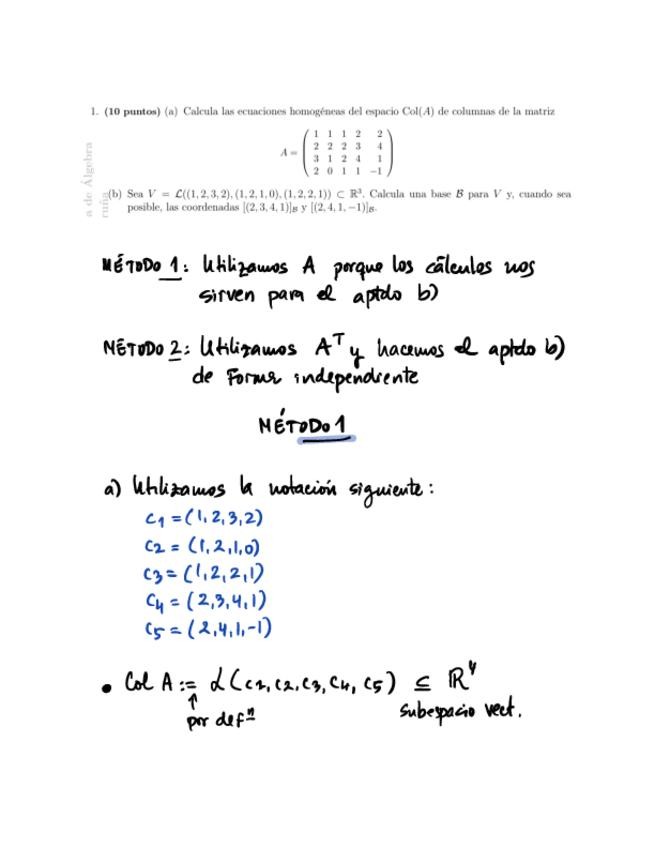 1. (10 puntos) (a) Calcula las ecuaciones homogéneas del espacio Col(A) de columnas de la matriz
A = ( 1 1 1 2 2
2 2 2 3 4
3 1 2 4 1
2 0 1 1 −1 )
(b) Sea V = L((1, 2, 3, 2), (1, 2, 1, 0), (1, 2, 2, 1)) ⊂ ℝ³. Calcula una base B para V y, cuando sea
posible, las coordenadas [(2, 3, 4, 1)]B y [(2, 4, 1, −1)]B.
a de Álgebra
ruña
MÉTODO 1: Utilizamos A porque los cálculos nos
sirven para el aptdo b)
MÉTODO 2: Utilizamos Aᵀ y hacemos el aptdo b)
de forma independiente
MÉTODO 1
a) Utilizamos la notación siguiente:
C1 = (1, 2, 3, 2)
C2 = (1, 2, 1, 0)
C3 = (1, 2, 2, 1)
C4 = (2, 3, 4, 1)
C5 = (2, 4, 1, -1)
• Col A := L(C1, C2, C3, C4, C5) ⊆ ℝ⁴
↑
por defⁿ subespacio vect.